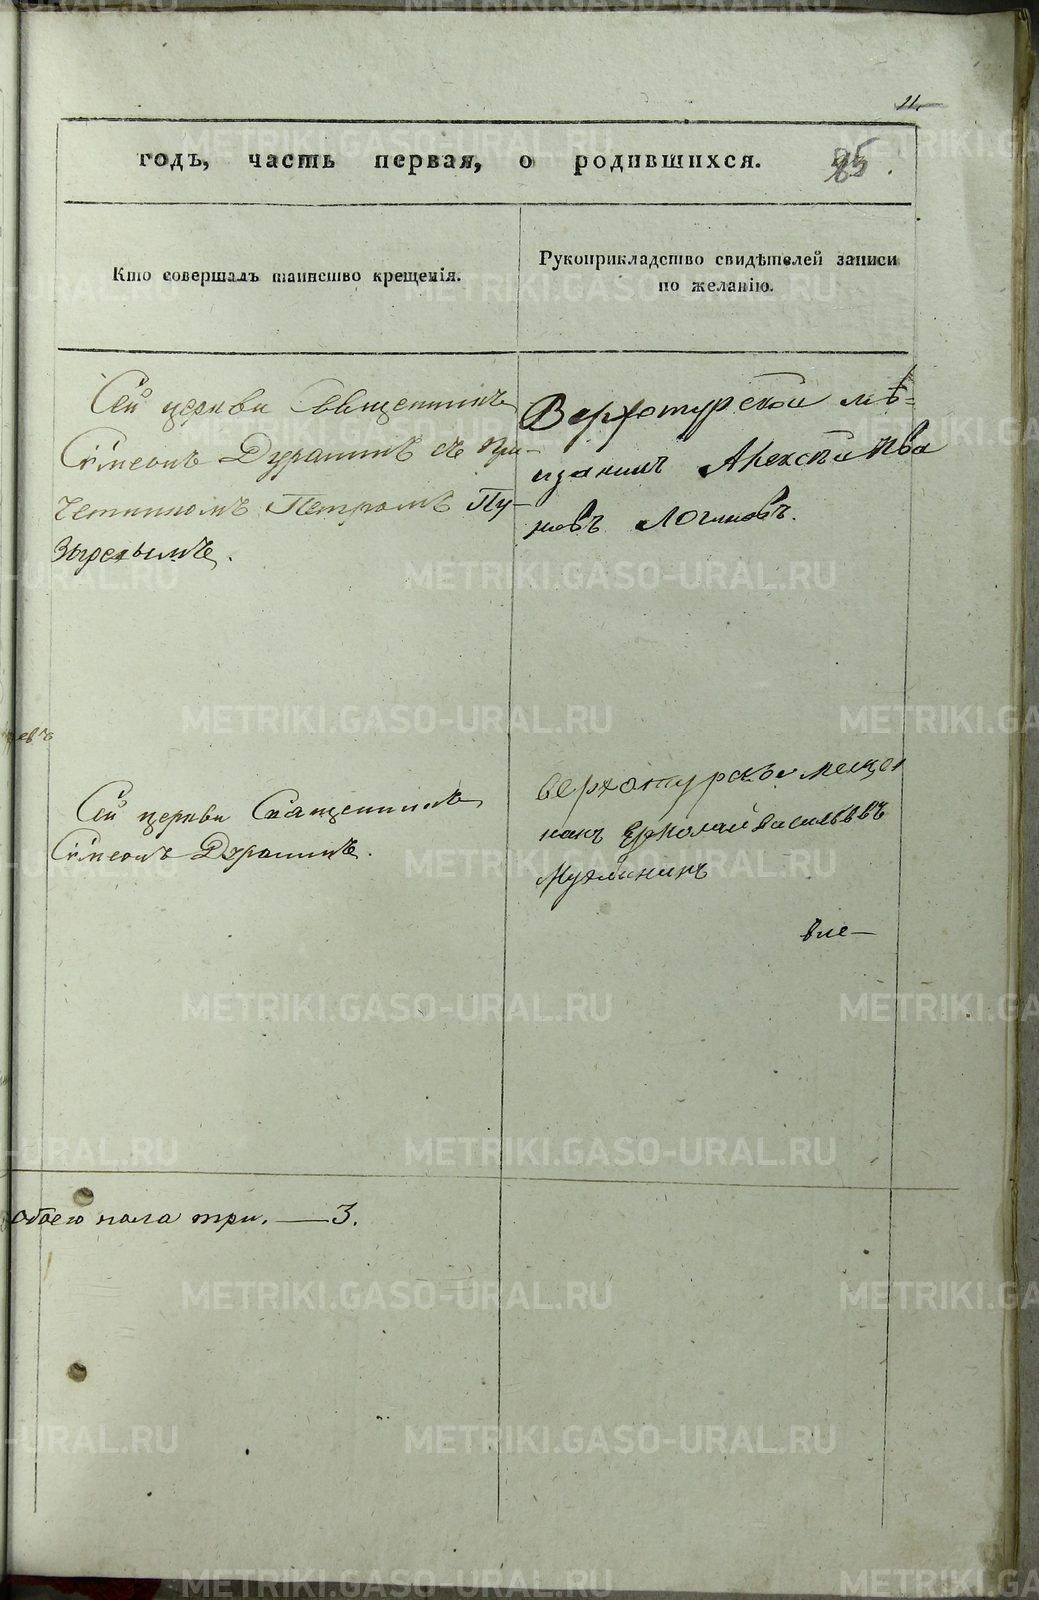 11.
годъ, часть первая, о родившихся. 95.
Кто совершалъ таинство крещенія.
Рукоприкладство свидѣтелей записи
по желанію.
Сей церкви Священникъ
Сѵмеонъ Дерябинъ съ при-
четникомъ Петромъ Пу-
зыревымъ.
Верхотурской мѣ-
щанинъ Алексѣй Ива
новъ Логиновъ.
евъ
Сей церкви Священникъ
Сѵмеонъ
верхотурскъи мещен
нинъ Ермолай васильввъ
Мухлынинъ
вле—
обоего пола три. — 3.
METRIKI.GASO-URAL.RU